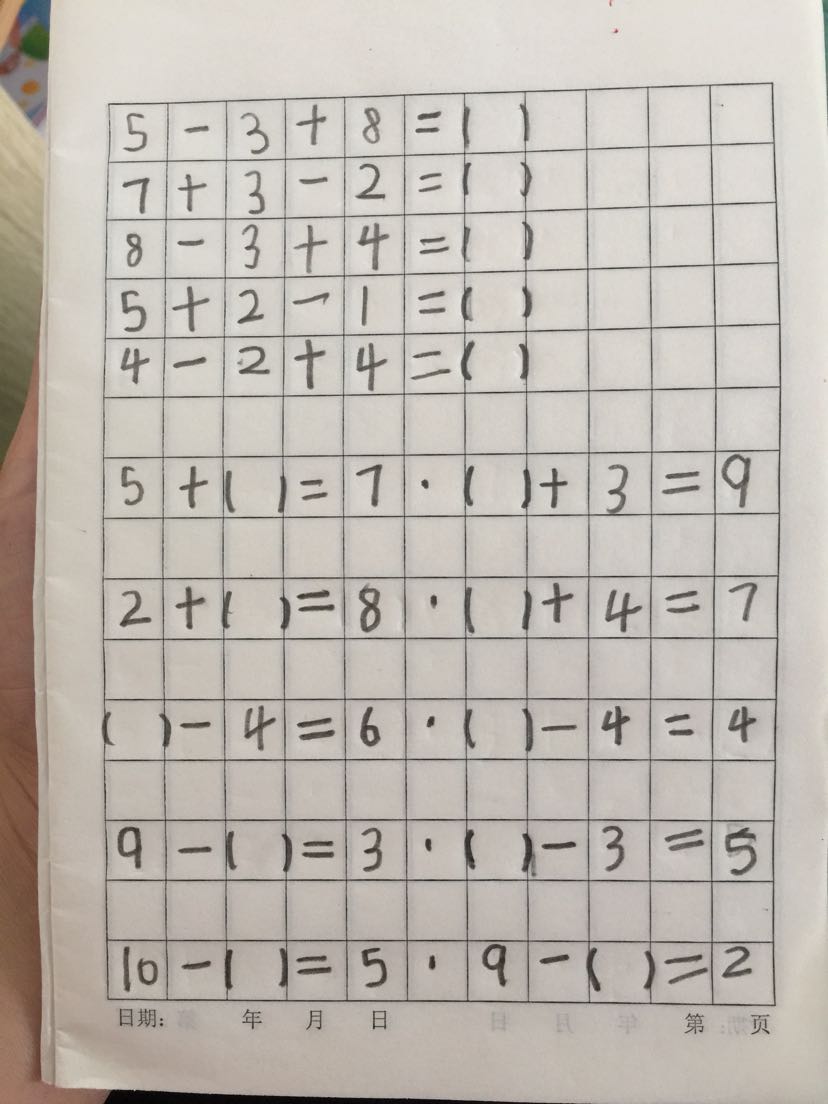 5 - 3 + 8 = ( )
7 + 3 - 2 = ( )
8 - 3 + 4 = ( )
5 + 2 - 1 = ( )
4 - 2 + 4 = ( )
5 + ( ) = 7 · ( ) + 3 = 9
2 + ( ) = 8 · ( ) + 4 = 7
( ) - 4 = 6 · ( ) - 4 = 4
9 - ( ) = 3 · ( ) - 3 = 5
10 - ( ) = 5 · 9 - ( ) = 2
日期: 年 月 日 第 页